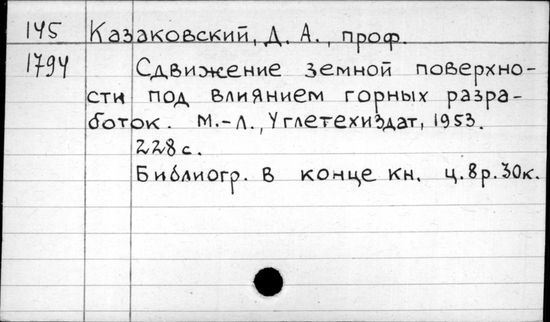 145 Казаковский, Д. А., проф.
1794 Сдвижение земной поверхно-
сти под влиянием горных разра-
боток. М.-Л., Углетехиздат, 1953.
228 с.
Библиогр. в конце кн. ц. 8 р. 30 к.